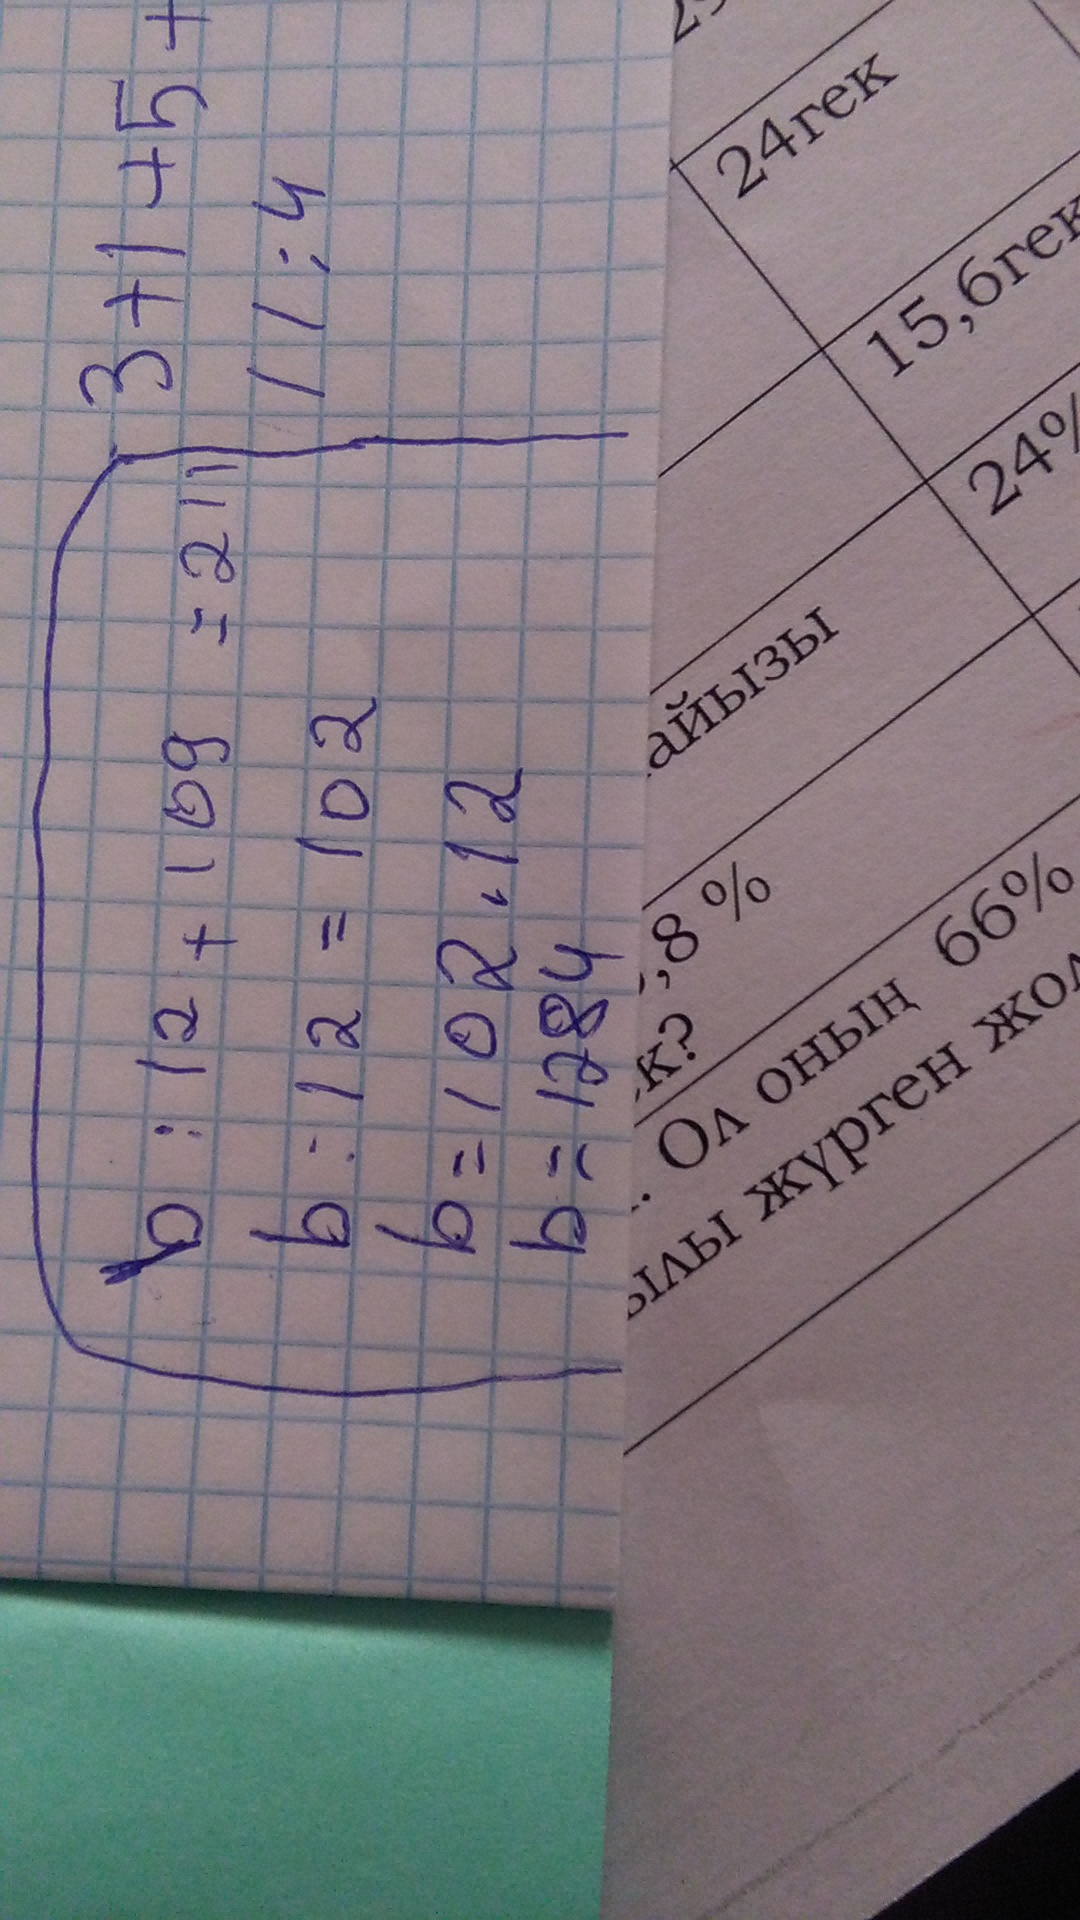 3+1+5+
11:4
b:12+109 =211
b:12=102
b=102.12
b=1284
24гек
15,6гек
24%
айызы
,8 %
ек?
. Ол оның 66%
ылы жүрген жол